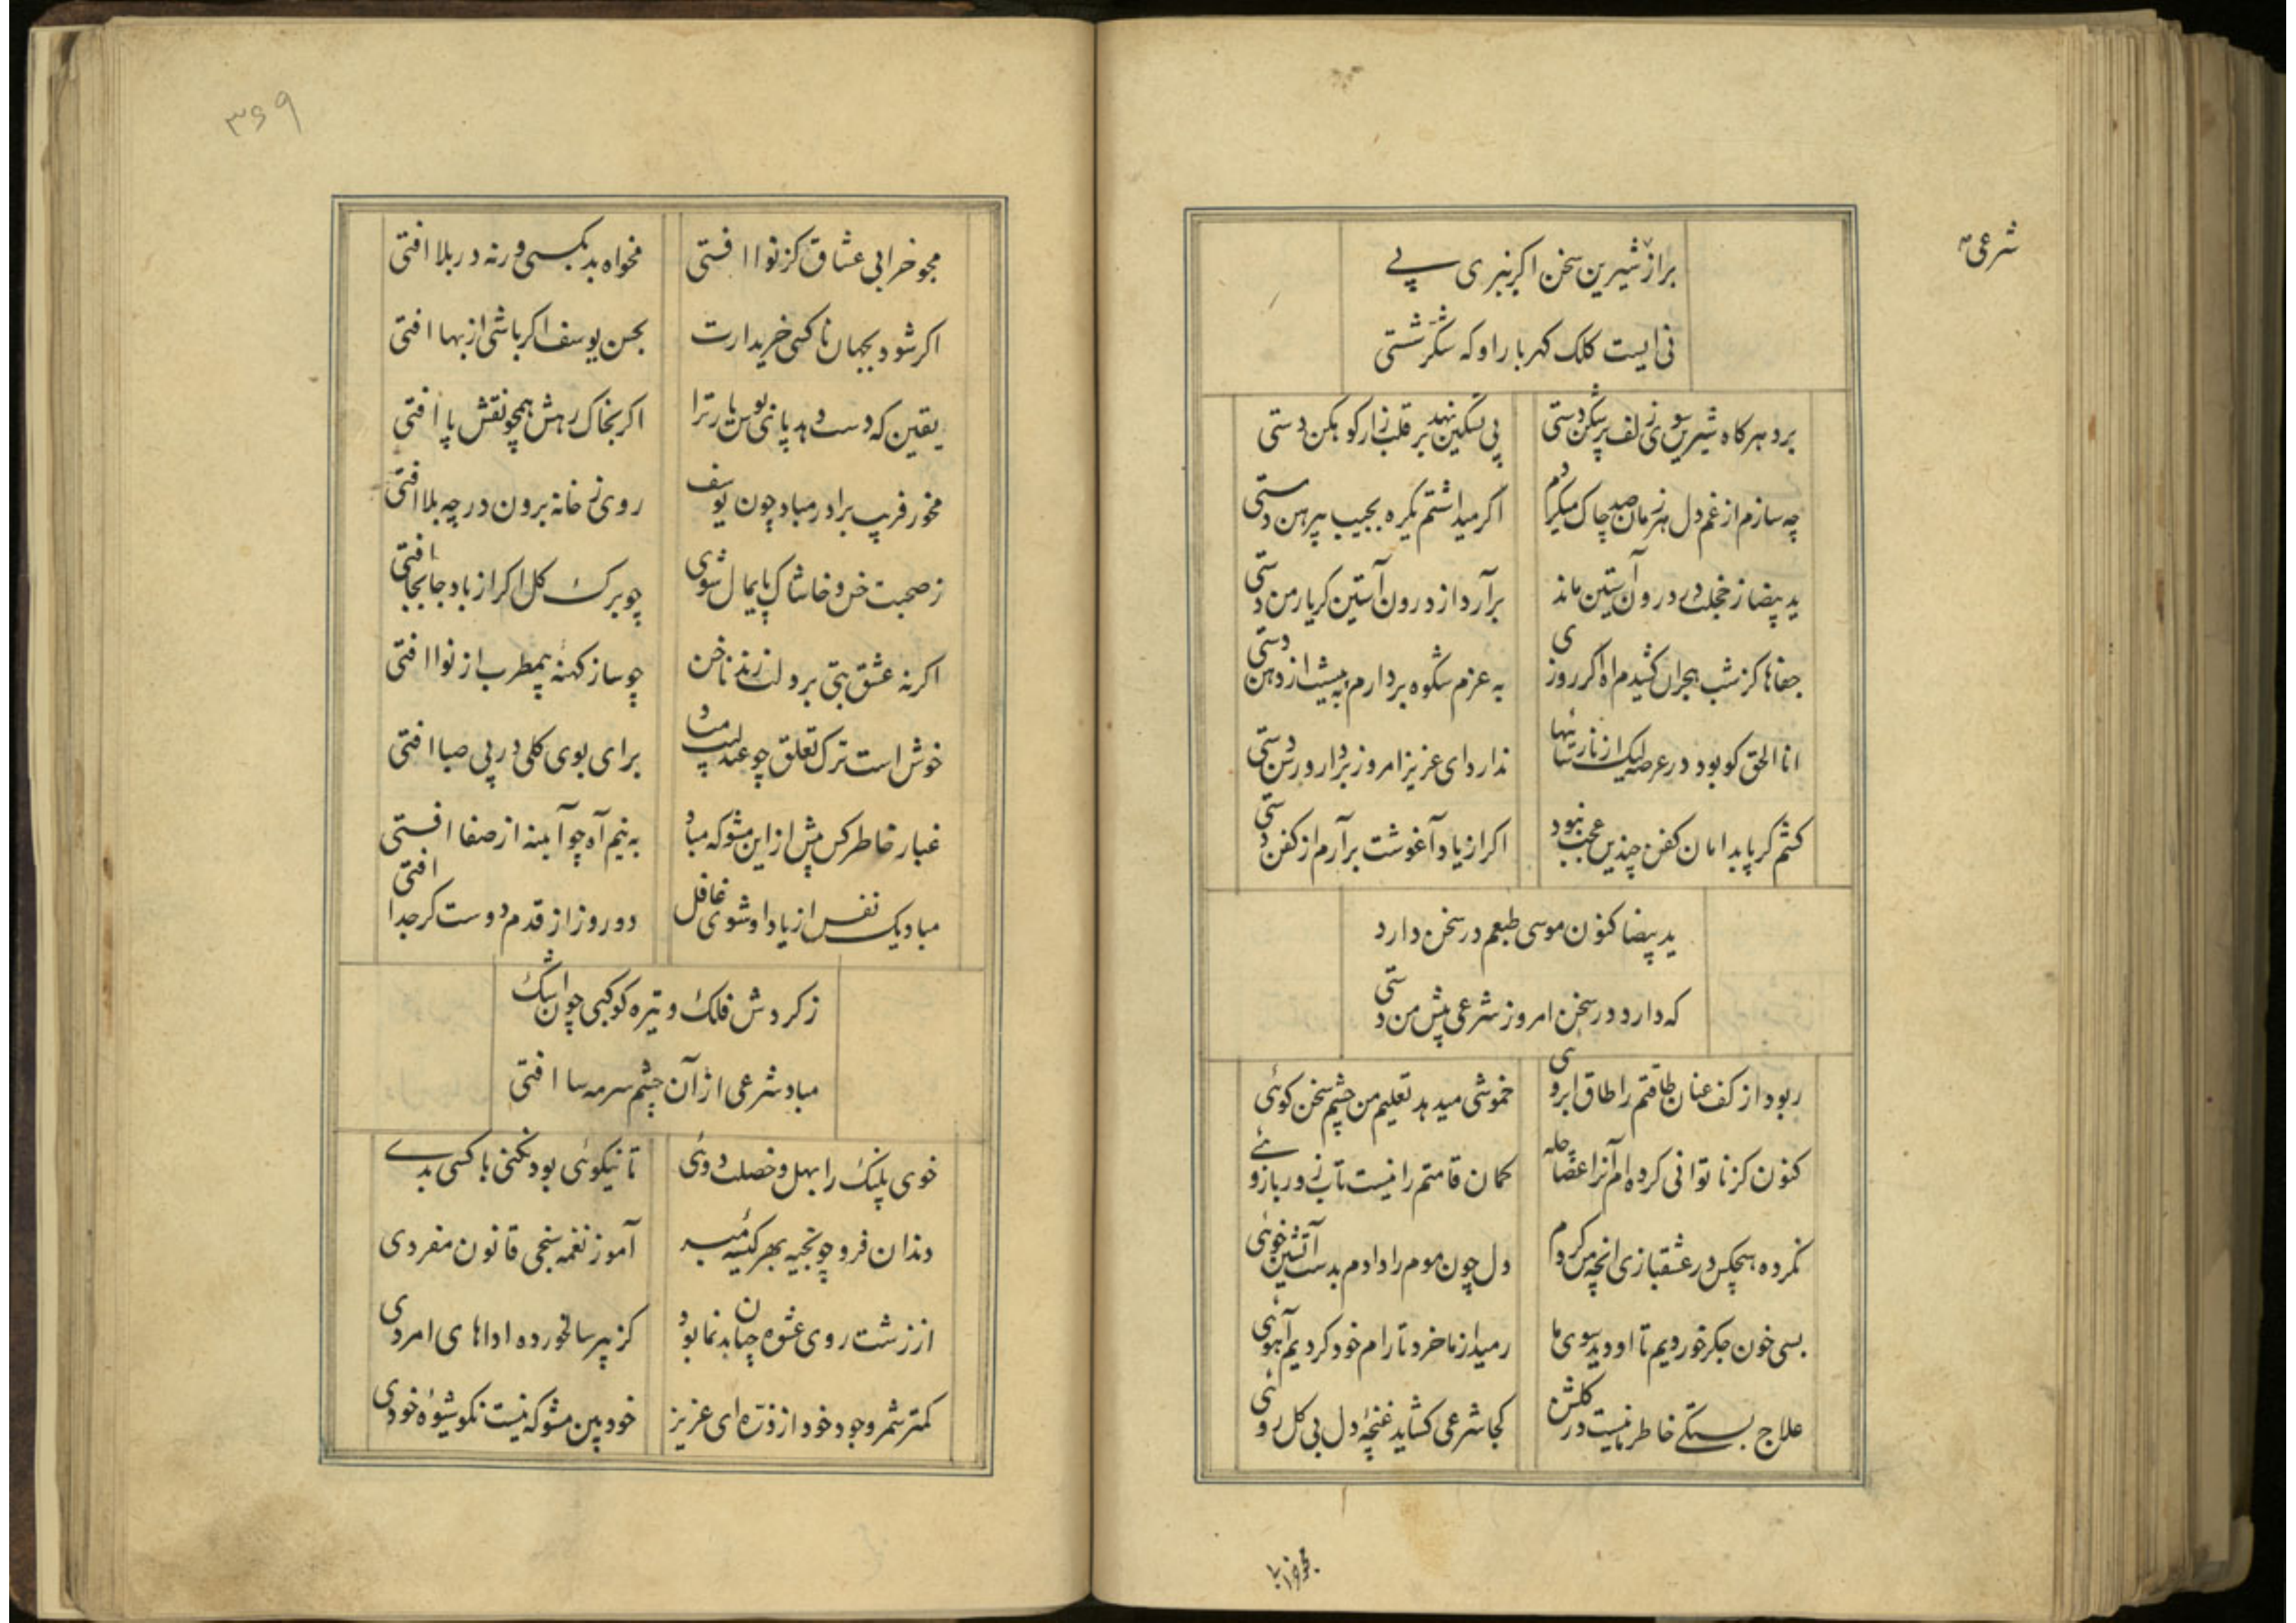 شرعی
براز شیرین سخن اکر نبری پے
نی ایست کلک کهربار او که شکر شستی
برد هرکاه شیرین سوی زلف پرشکن دستی
پی تسکین نهد بر قلب زار کوهکن دستی
چه سازم از غم دل هر زمان صد چاک میکردم
اکر میداشتم یکره بجیب پیرهن دستی
ید بیضا ز خجلت در درون آستین ماند
برآرد از درون آستین کر یار من دستی
جفاها کز شب هجران کشیدم آه اکر روزی
به عزم شکوه بردارم به پیشت از دهن دستی
انا الحق کو بود در عرصه لیک از نارسائیها
ندارد ای عزیز امروز بر دار و رسن دستی
کشم کر پا بدامان کفن چندین عجب نبود
اکر از یاد آغوشت برآرم از کفن دستی
ید بیضا کنون موسی طبعم در سخن دارد
که دارد در سخن امروز شرعی پیش من دستی
ربود از کف عنان طاقتم را طاق ابروی
خموشی میدهد تعلیم من چشم سخن کوئی
کنون کز ناتوانی کرده ام آنرا عصا چله
کمان قامتم را نیست تاب زور بازوئے
نکرده هیچکس در عشقبازی آنچه من کردم
دل چون موم را دادم بدست آتشین خوئی
بسی خون جکر خوردیم تا او دید سوی ما
رمید از ما خرد تا رام خود کردیم آهوئی
علاج بستکے خاطر ما نیست در کلشن
کجا شرعی کشاید غنچهٔ دل بی کل روئی
مجو خرابی
۳۶۹
مجو خرابی عشاق کز نوا افتی
مخواه بد بکسی ورنه در بلا افتی
اکر شود بجهان ناکسی خریدارت
بحسن یوسف اکر باشی از بها افتی
یقین که دست دهد پای بوس یار ترا
اکر بخاک رهش همچو نقش پا افتی
مخور فریب برادر مباد چون یوسف
روی ز خانه برون در چه بلا افتی
ز صحبت خس و خاشاک پایمال شوی
چو برک کل اکر از باد جابجا افتی
اکر نه عشق بتی بر دلت زند ناخن
چو ساز کهنهٔ بیمطرب از نوا افتی
خوش است ترک تعلق چو عندلیب مباد
برای بوی کلی در پی صبا افتی
غبار خاطر کس بیش از این مشو که مباد
به نیم آه چو آیینه از صفا افتی
مباد یک نفس از یاد او شوی غافل
دو روز از قدم دوست کر جدا افتی
ز کردش فلک و تیره کوکبی چو اشک
مباد شرعی از آن چشم سرمه سا افتی
خوی پلنک را بهل و خصلت ددی
تا نیکوئی بود نکنی با کسی بدے
دندان فرو چو بخیه بهر کیسهٔ مبر
آموز نغمه سنجی قانون مفردی
از زشت روی عشوه چنان بدنما بود
کز پیر سالخورده اداهای امردی
کمتر شمر وجود خود از ذرّه ای عزیز
خودبین مشو که نیست نکو شیوهٔ خودی